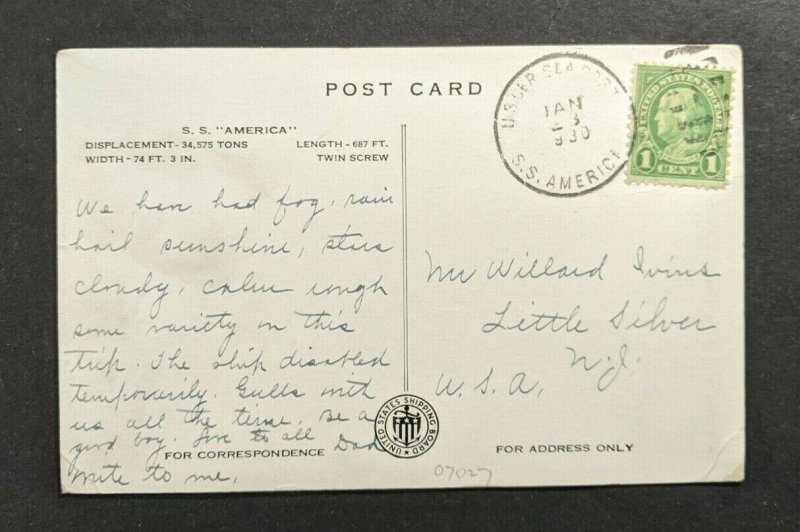 POST CARD
S. S. "AMERICA"
DISPLACEMENT - 34,575 TONS LENGTH - 687 FT.
WIDTH - 74 FT. 3 IN. TWIN SCREW
We have had fog, rain
hail sunshine, stars
cloudy, calm rough
some variety on this
trip. The ship disabled
temporarily. Gulls with
us all the time, Be a
good boy. Love to all Dad
write to me,
FOR CORRESPONDENCE
UNITED STATES SHIPPING BOARD
Mr Willard Ivins
Little Silver
N.J.
U.S.A.
FOR ADDRESS ONLY
07027
JAN
S.S. AMERICA
1 CENT 1